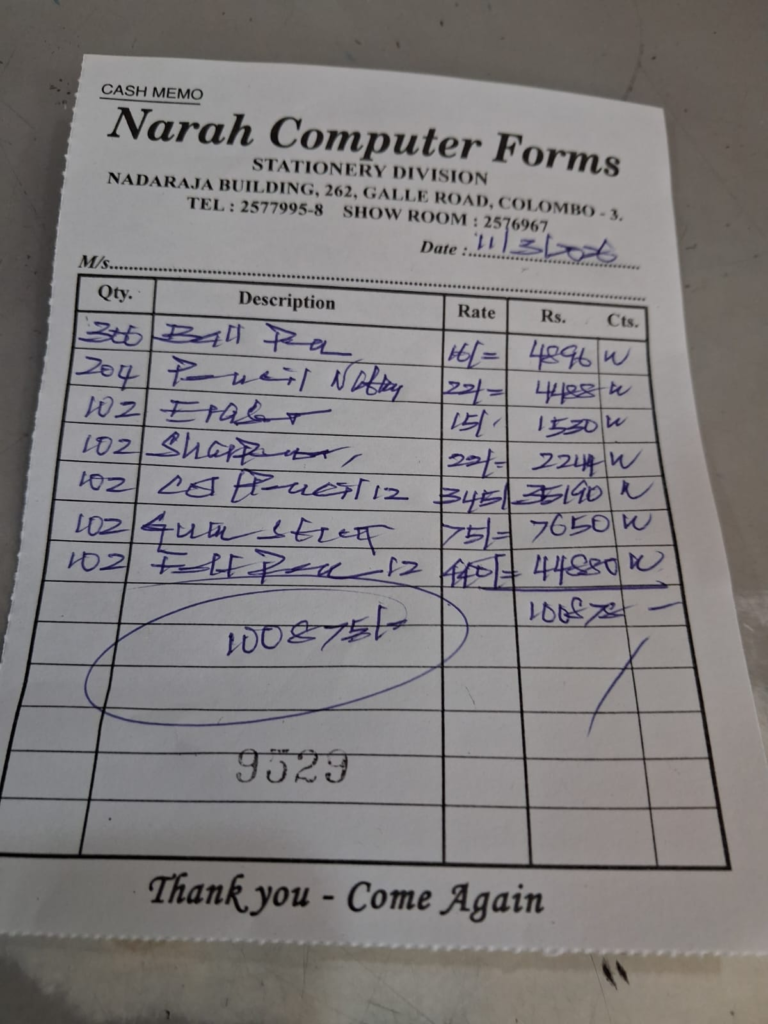 CASH MEMO
Narah Computer Forms
STATIONERY DIVISION
NADARAJA BUILDING, 262, GALLE ROAD, COLOMBO - 3.
TEL : 2577995-8 SHOW ROOM : 2576967
Date : 11/3/2026
M/s.
Qty. Description Rate Rs. Cts.
Ball Pen 16/= 4896
204 Pencil 22/= 4488
102 Eraser 15/- 1530
102 Sharpener 22/= 2244
102 Pencil 12 345/ 35190
102 Gum 75/= 7650
102 12 440/= 44880
100878 -
100875/=
9529
Thank you - Come Again